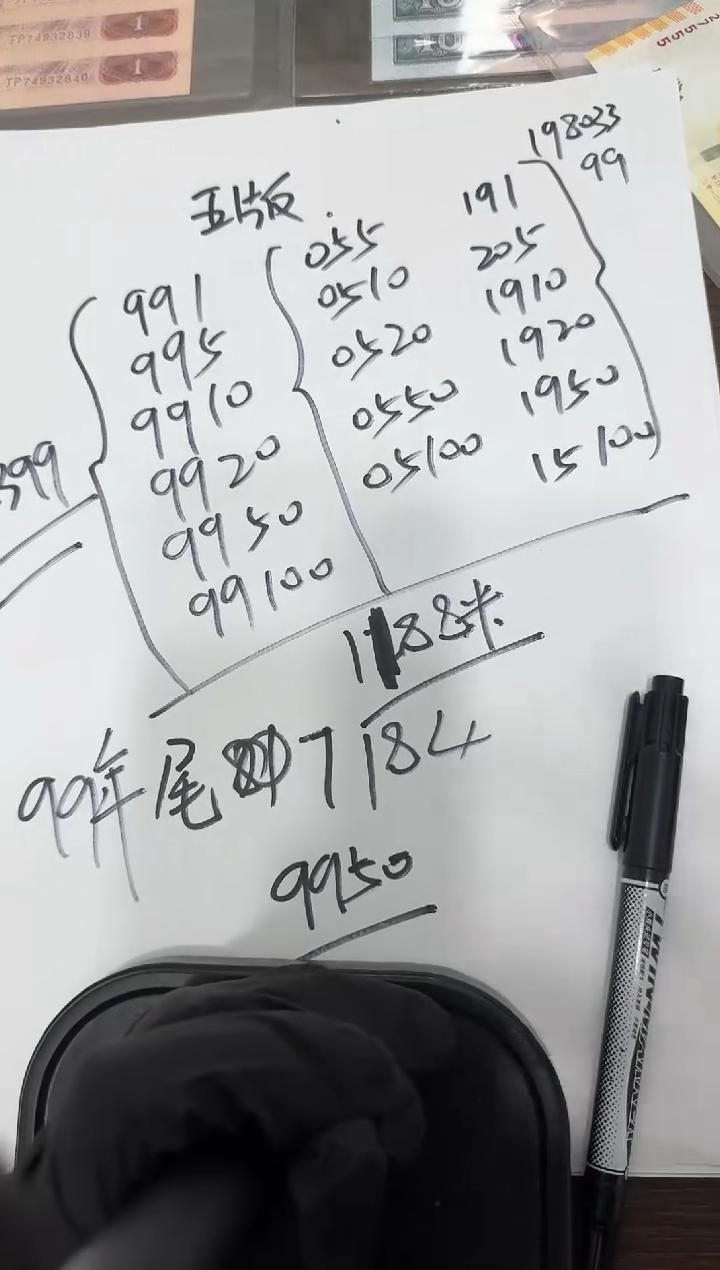 TP74932839
1
TP74932840
1
198033
99
五版.
991
995
9910
9920
9950
99100
055
0510
0520
0550
05100
191
205
1910
1920
1950
15100
399
1188米
99年尾 7184
9950